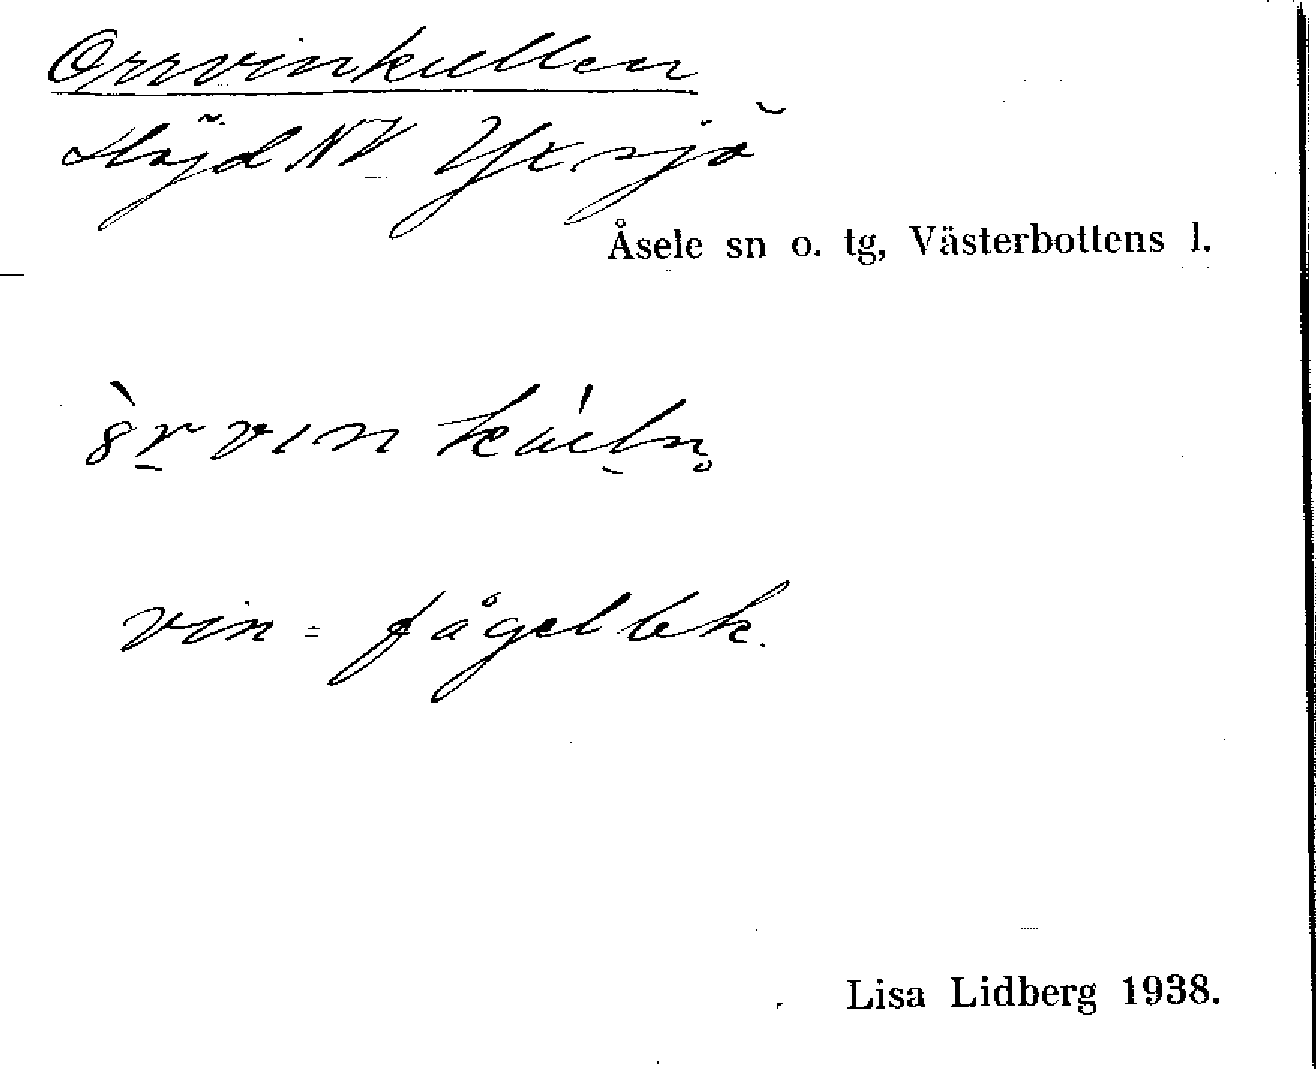 Orrvinkullen
Höjd NV Yxsjö
Åsele sn o. tg, Västerbottens l.
vin = fågellek.
Lisa Lidberg 1938.